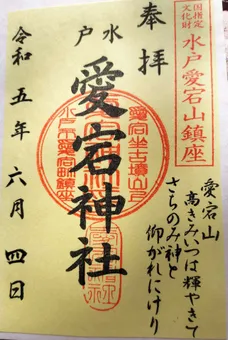 国指定
文化財
水戸愛宕山鎮座
奉拝
水戸
愛宕神社
愛宕山
高きみいつは輝やきて
さちのみ神と
仰がれにけり
愛宕坐古墳山戸
水戸市愛宕町鎮座
令和五年六月四日